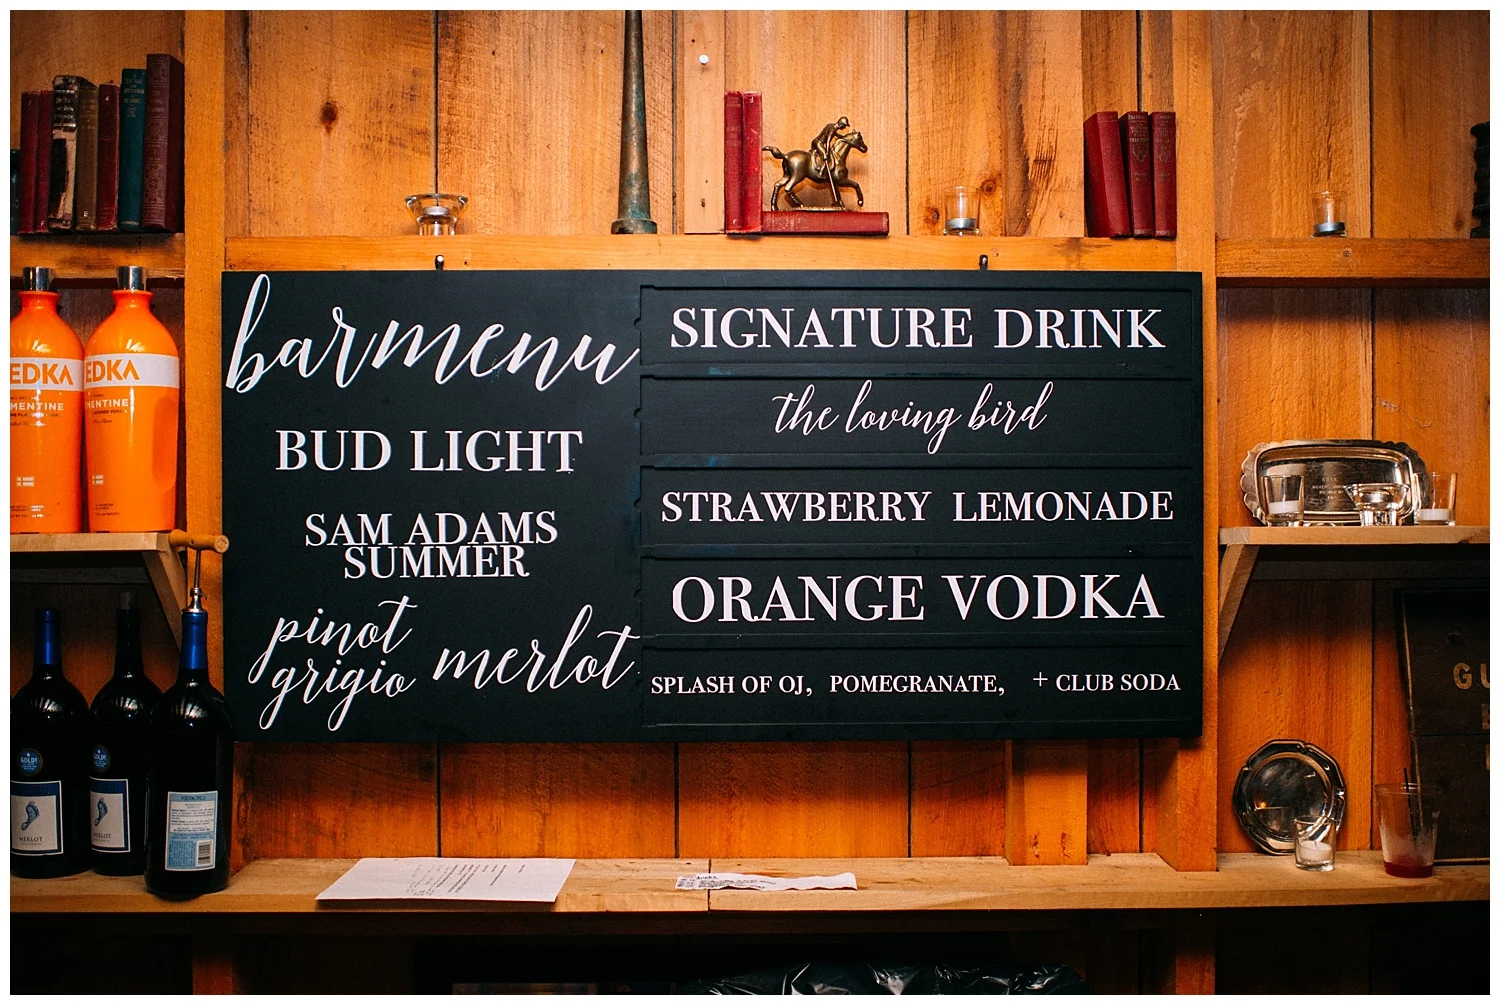 barmenu
BUD LIGHT
SAM ADAMS
SUMMER
pinot
grigio
merlot
SIGNATURE DRINK
the loving bird
STRAWBERRY LEMONADE
ORANGE VODKA
SPLASH OF OJ, POMEGRANATE, + CLUB SODA
EDKA
MENTINE
EDKA
MENTINE
GOLD!
MERLOT
GOLD!
MERLOT
GU